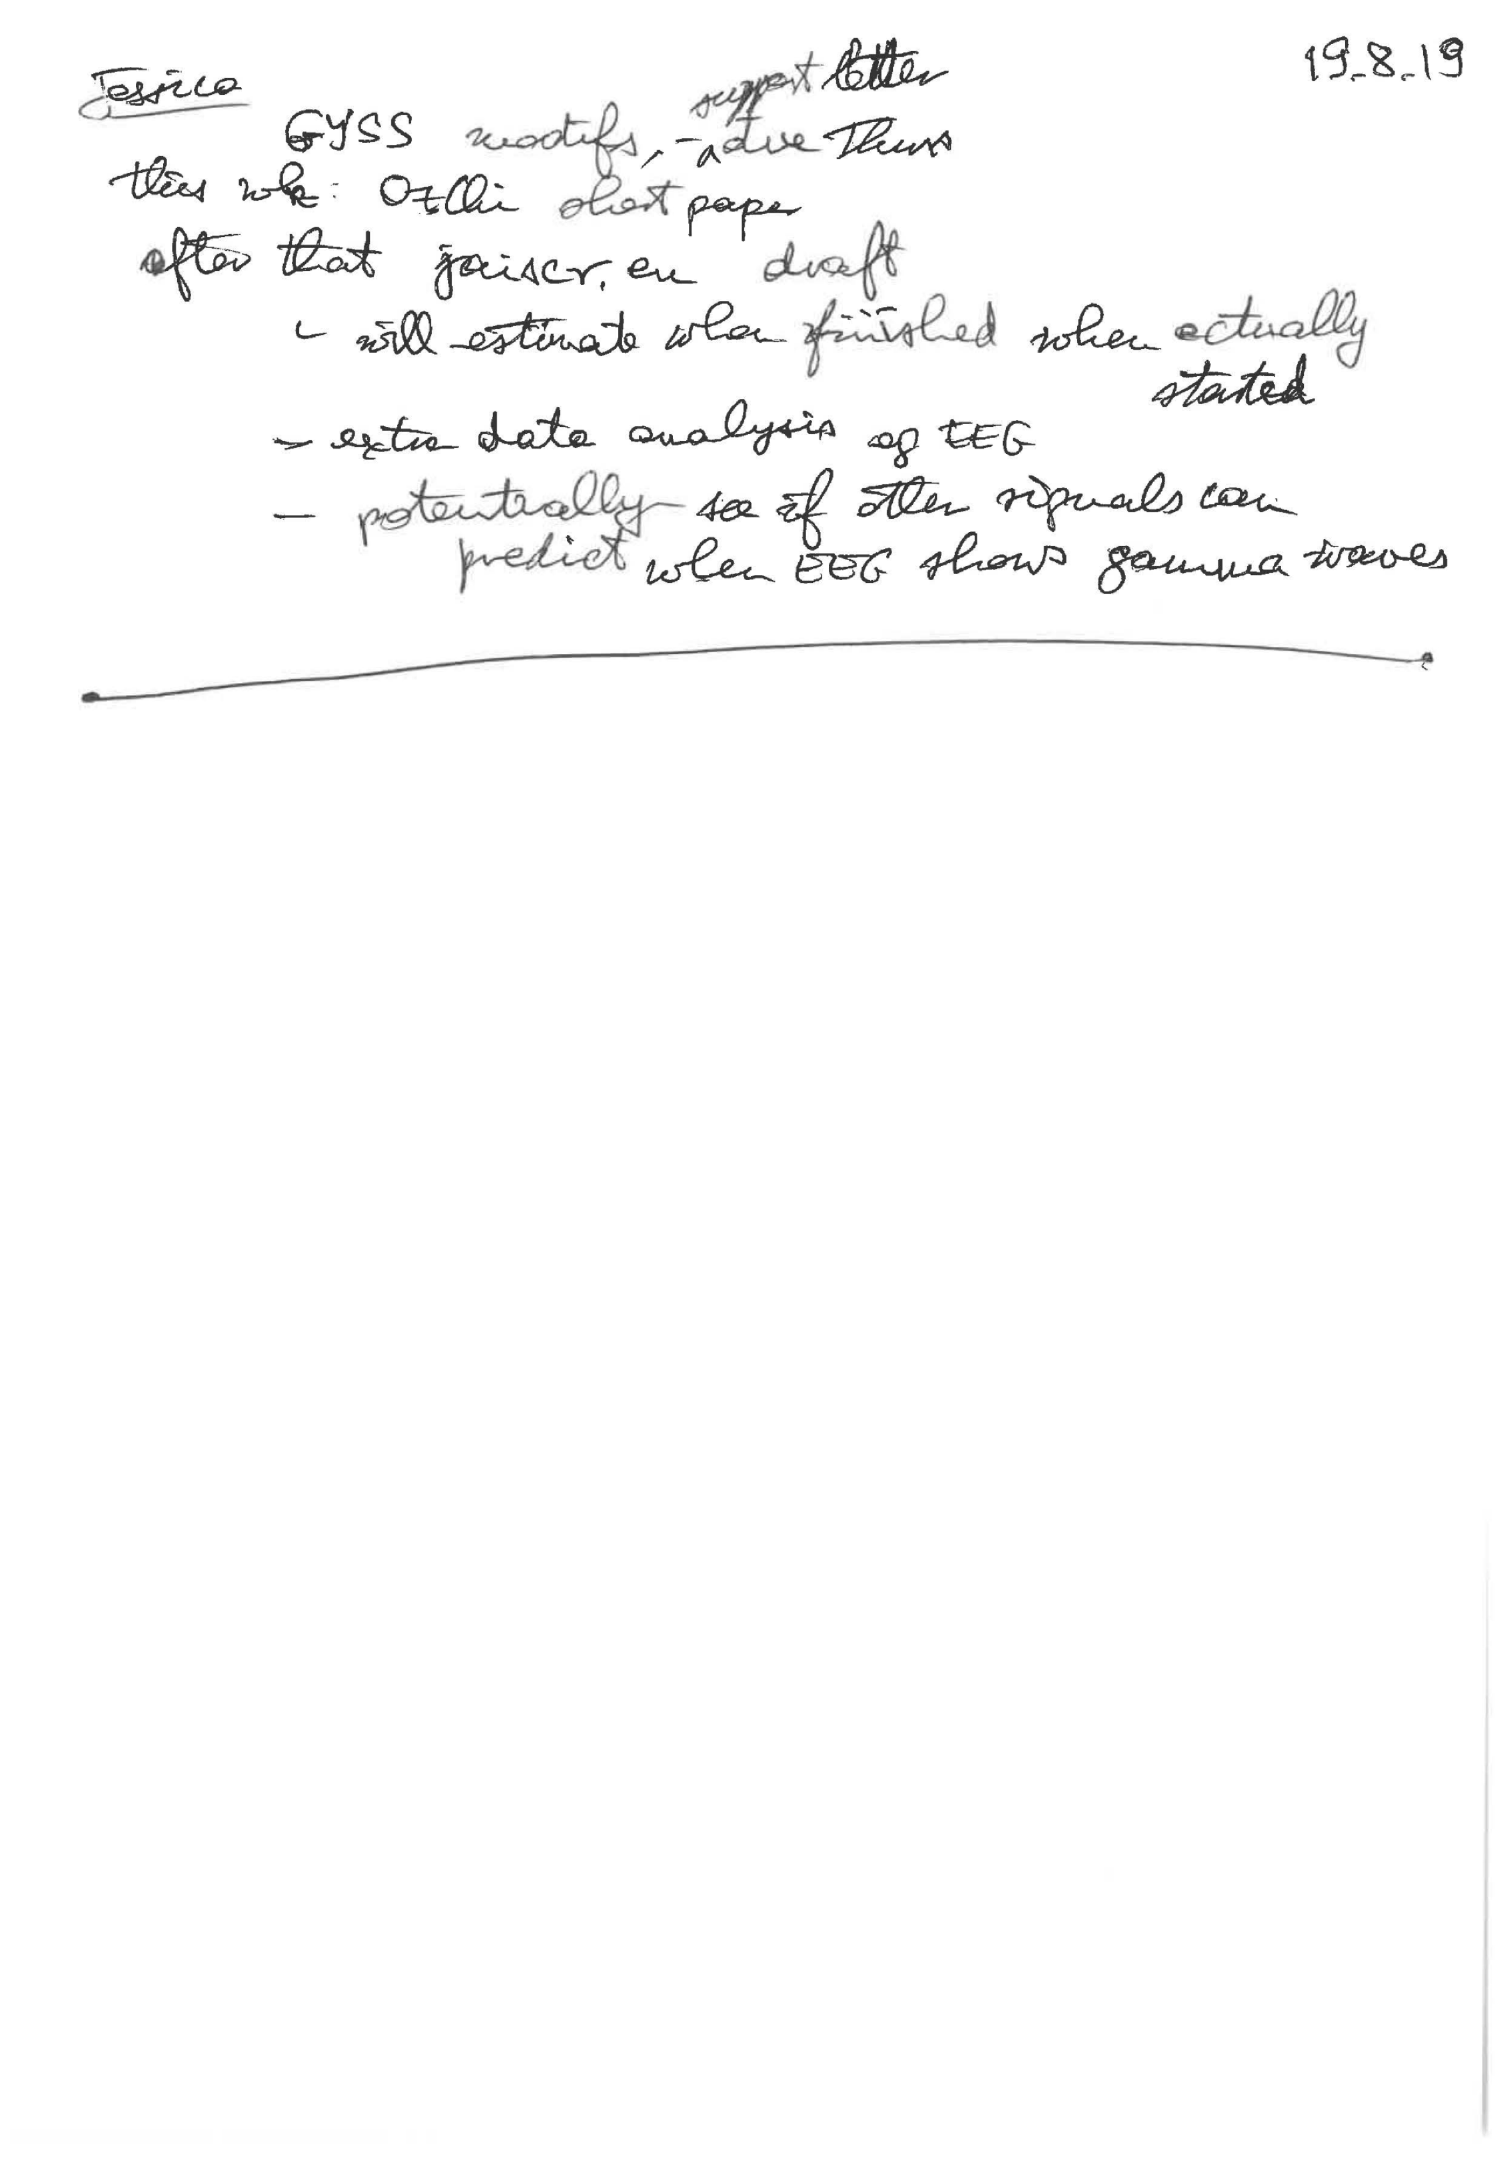 Jessica
19.8.19
support letter
GYSS modifs, - due Thurs
this wk: OzCHI short paper
after that jaiscr.eu draft
- will estimate when finished when actually
started
- extra data analysis of EEG
- potentially see if other signals can
predict when EEG shows gamma waves